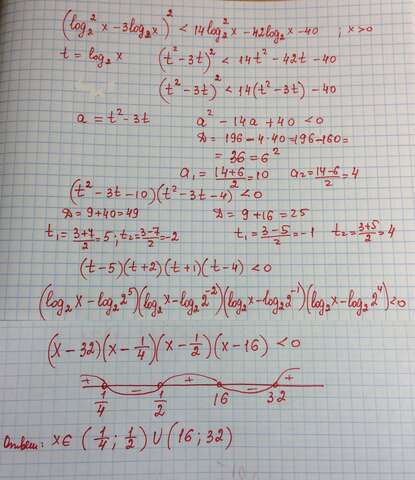 (log₂² x − 3log₂ x)² < 14log₂² x − 42log₂ x − 40 ; x>0
t = log₂ x (t² − 3t)² < 14t² − 42t − 40
(t² − 3t)² < 14(t² − 3t) − 40
a = t² − 3t a² − 14a + 40 < 0
D = 196 − 4·40 = 196 − 160 =
= 36 = 6²
a₁ = (14+6)/2 = 10 a₂ = (14−6)/2 = 4
(t² − 3t − 10)(t² − 3t − 4) < 0
D = 9 + 40 = 49 D = 9 + 16 = 25
t₁ = (3+7)/2 = 5 ; t₂ = (3−7)/2 = −2 t₁ = (3−5)/2 = −1 t₂ = (3+5)/2 = 4
(t − 5)(t + 2)(t + 1)(t − 4) < 0
(log₂ x − log₂ 2⁵)(log₂ x − log₂ 2⁻²)(log₂ x − log₂ 2⁻¹)(log₂ x − log₂ 2⁴) < 0
(x − 32)(x − 1/4)(x − 1/2)(x − 16) < 0
+ − + − +
1/4 1/2 16 32
Ответ: x ∈ (1/4 ; 1/2) ∪ (16 ; 32)